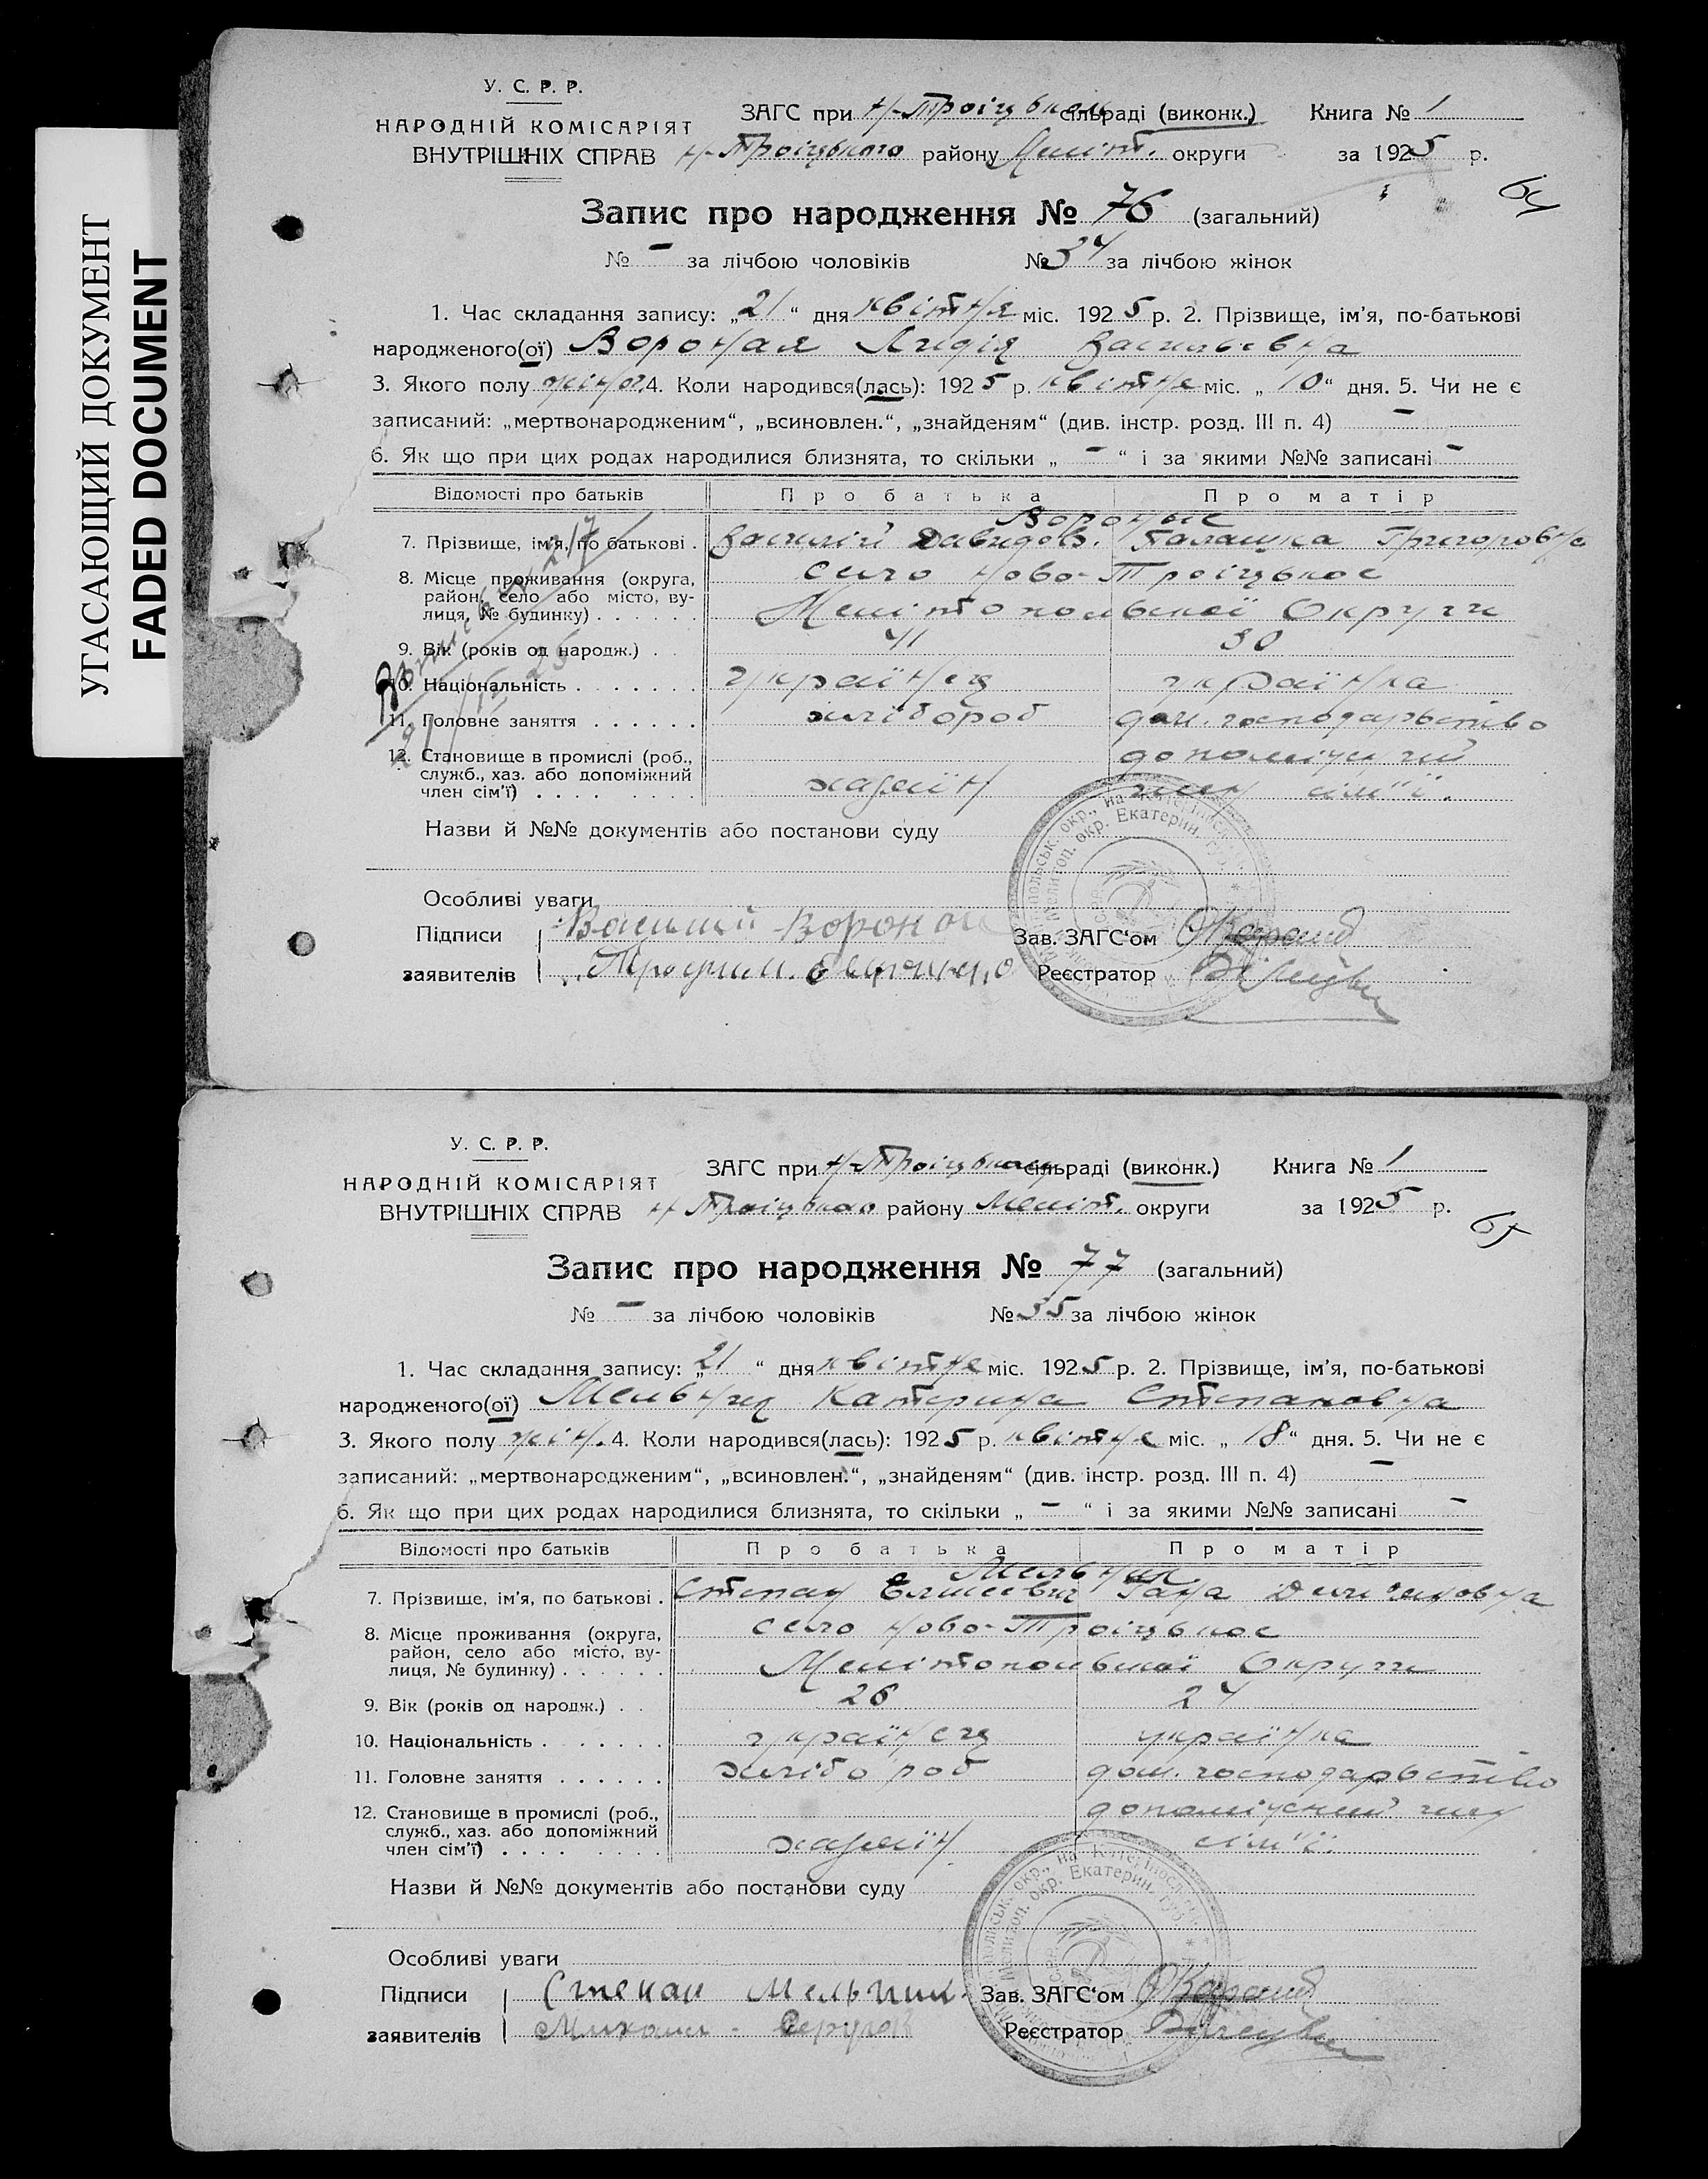 УГАСАЮЩИЙ ДОКУМЕНТ
FADED DOCUMENT
У. С. Р. Р.
НАРОДНІЙ КОМІСАРІЯТ
ВНУТРІШНІХ СПРАВ
ЗАГС при Н-Троіцькому сільраді (виконк.) Книга № 1
Н-Троіцького району Меліт. округи за 1925 р.
64
Запис про народження № 76 (загальний)
№ – за лічбою чоловіків № 34 за лічбою жінок
1. Час складання запису: „21“ дня квітня міс. 1925 р. 2. Прізвище, ім'я, по-батькові
народженого(ої) Вороная Лидія Васильевна
3. Якого полу жіноч. 4. Коли народився(лась): 1925 р. квітня міс. „10“ дня. 5. Чи не є
записаний: „мертвонародженим“, „всиновлен.“, „знайденям“ (див. інстр. розд. III п. 4) –
6. Як що при цих родах народилися близнята, то скільки „ – “ і за якими №№ записані –
Відомості про батьків Про батька Про матір
Вороные
7. Прізвище, ім'я, по батькові . Василій Давидов. Палашка Григоровна
8. Місце проживання (округа, село Ново-Троіцькое
район, село або місто, ву-
лиця, № будинку) . . . . . . Мелітопольскої Округи
9. Вік (років од народж.) . . 41 30
10. Національність . . . . . . . українець українка
11. Головне заняття . . . . . . хлібороб дом. господарьство
12. Становище в промислі (роб., допоміжний
служб., хаз. або допоміжний
член сім'ї) . . . . . . . . хазяїн член сім'ї.
Назви й №№ документів або постанови суду
Особливі уваги
Підписи Василий Вороной Зав. ЗАГС'ом
заявителів Реєстратор
У. С. Р. Р.
НАРОДНІЙ КОМІСАРІЯТ
ВНУТРІШНІХ СПРАВ
ЗАГС при Н-Троіцькому сільраді (виконк.) Книга № 1
Н-Троіцького району Меліт. округи за 1925 р.
65
Запис про народження № 77 (загальний)
№ – за лічбою чоловіків № 35 за лічбою жінок
1. Час складання запису: „21“ дня квітня міс. 1925 р. 2. Прізвище, ім'я, по-батькові
народженого(ої) Мельник Катерина Степановна
3. Якого полу жін. 4. Коли народився(лась): 1925 р. квітня міс. „18“ дня. 5. Чи не є
записаний: „мертвонародженим“, „всиновлен.“, „знайденям“ (див. інстр. розд. III п. 4) –
6. Як що при цих родах народилися близнята, то скільки „ – “ і за якими №№ записані –
Відомості про батьків Про батька Про матір
Мельник
7. Прізвище, ім'я, по батькові . Степан Елисеевич Гана
8. Місце проживання (округа, село Ново-Троіцькое
район, село або місто, ву-
лиця, № будинку) . . . . . . Мелітопольскої Округи
9. Вік (років од народж.) . . 26 24
10. Національність . . . . . . . українець українка
11. Головне заняття . . . . . . хлібороб дом. господарьство
12. Становище в промислі (роб., допоміжний член
служб., хаз. або допоміжний
член сім'ї) . . . . . . . . хазяїн сім'ї.
Назви й №№ документів або постанови суду
Особливі уваги
Підписи Степан Мельник Зав. ЗАГС'ом
заявителів Михаил Реєстратор